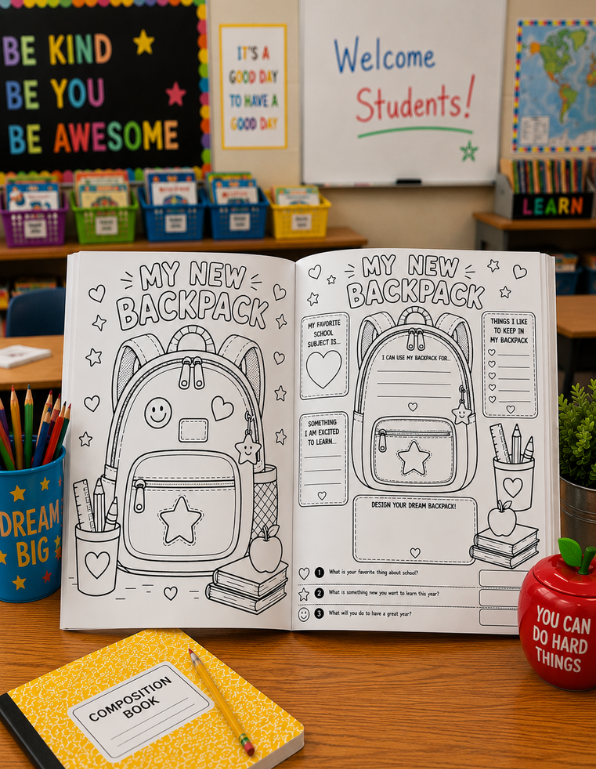 BE KIND
BE YOU
BE AWESOME
IT'S A
GOOD DAY
TO HAVE A
GOOD DAY
Welcome
Students!
LEARN
MY NEW
BACKPACK
MY NEW
BACKPACK
MY FAVORITE
SCHOOL
SUBJECT IS...
I CAN USE MY BACKPACK FOR...
THINGS I LIKE
TO KEEP IN
MY BACKPACK
SOMETHING
I AM EXCITED
TO LEARN...
DESIGN YOUR DREAM BACKPACK!
1 What is your favorite thing about school?
2 What is something new you want to learn this year?
3 What will you do to have a great year?
DREAM
BIG
YOU CAN
DO HARD
THINGS
COMPOSITION
BOOK